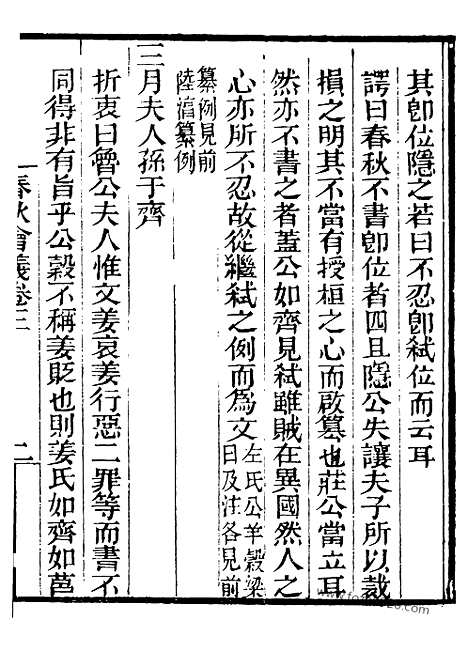 其卽位隱之若曰不忍卽弒位而云耳
諤曰春秋不書卽位者四且隱公失讓夫子所以裁
損之明其不當有授桓之心而啟篡也莊公當立耳
然亦不書之者蓋公如齊見弒雖賊在異國然人之
心亦所不忍故從繼弒之例而爲文左氏公羊穀梁
日及注各見前
纂例見前
陸淳纂例
三月夫人孫于齊
折衷曰魯公夫人惟文姜哀姜行惡二罪等而書不
同得非有旨乎公穀不稱姜貶也則姜氏如齊如莒
春秋會義卷三
二